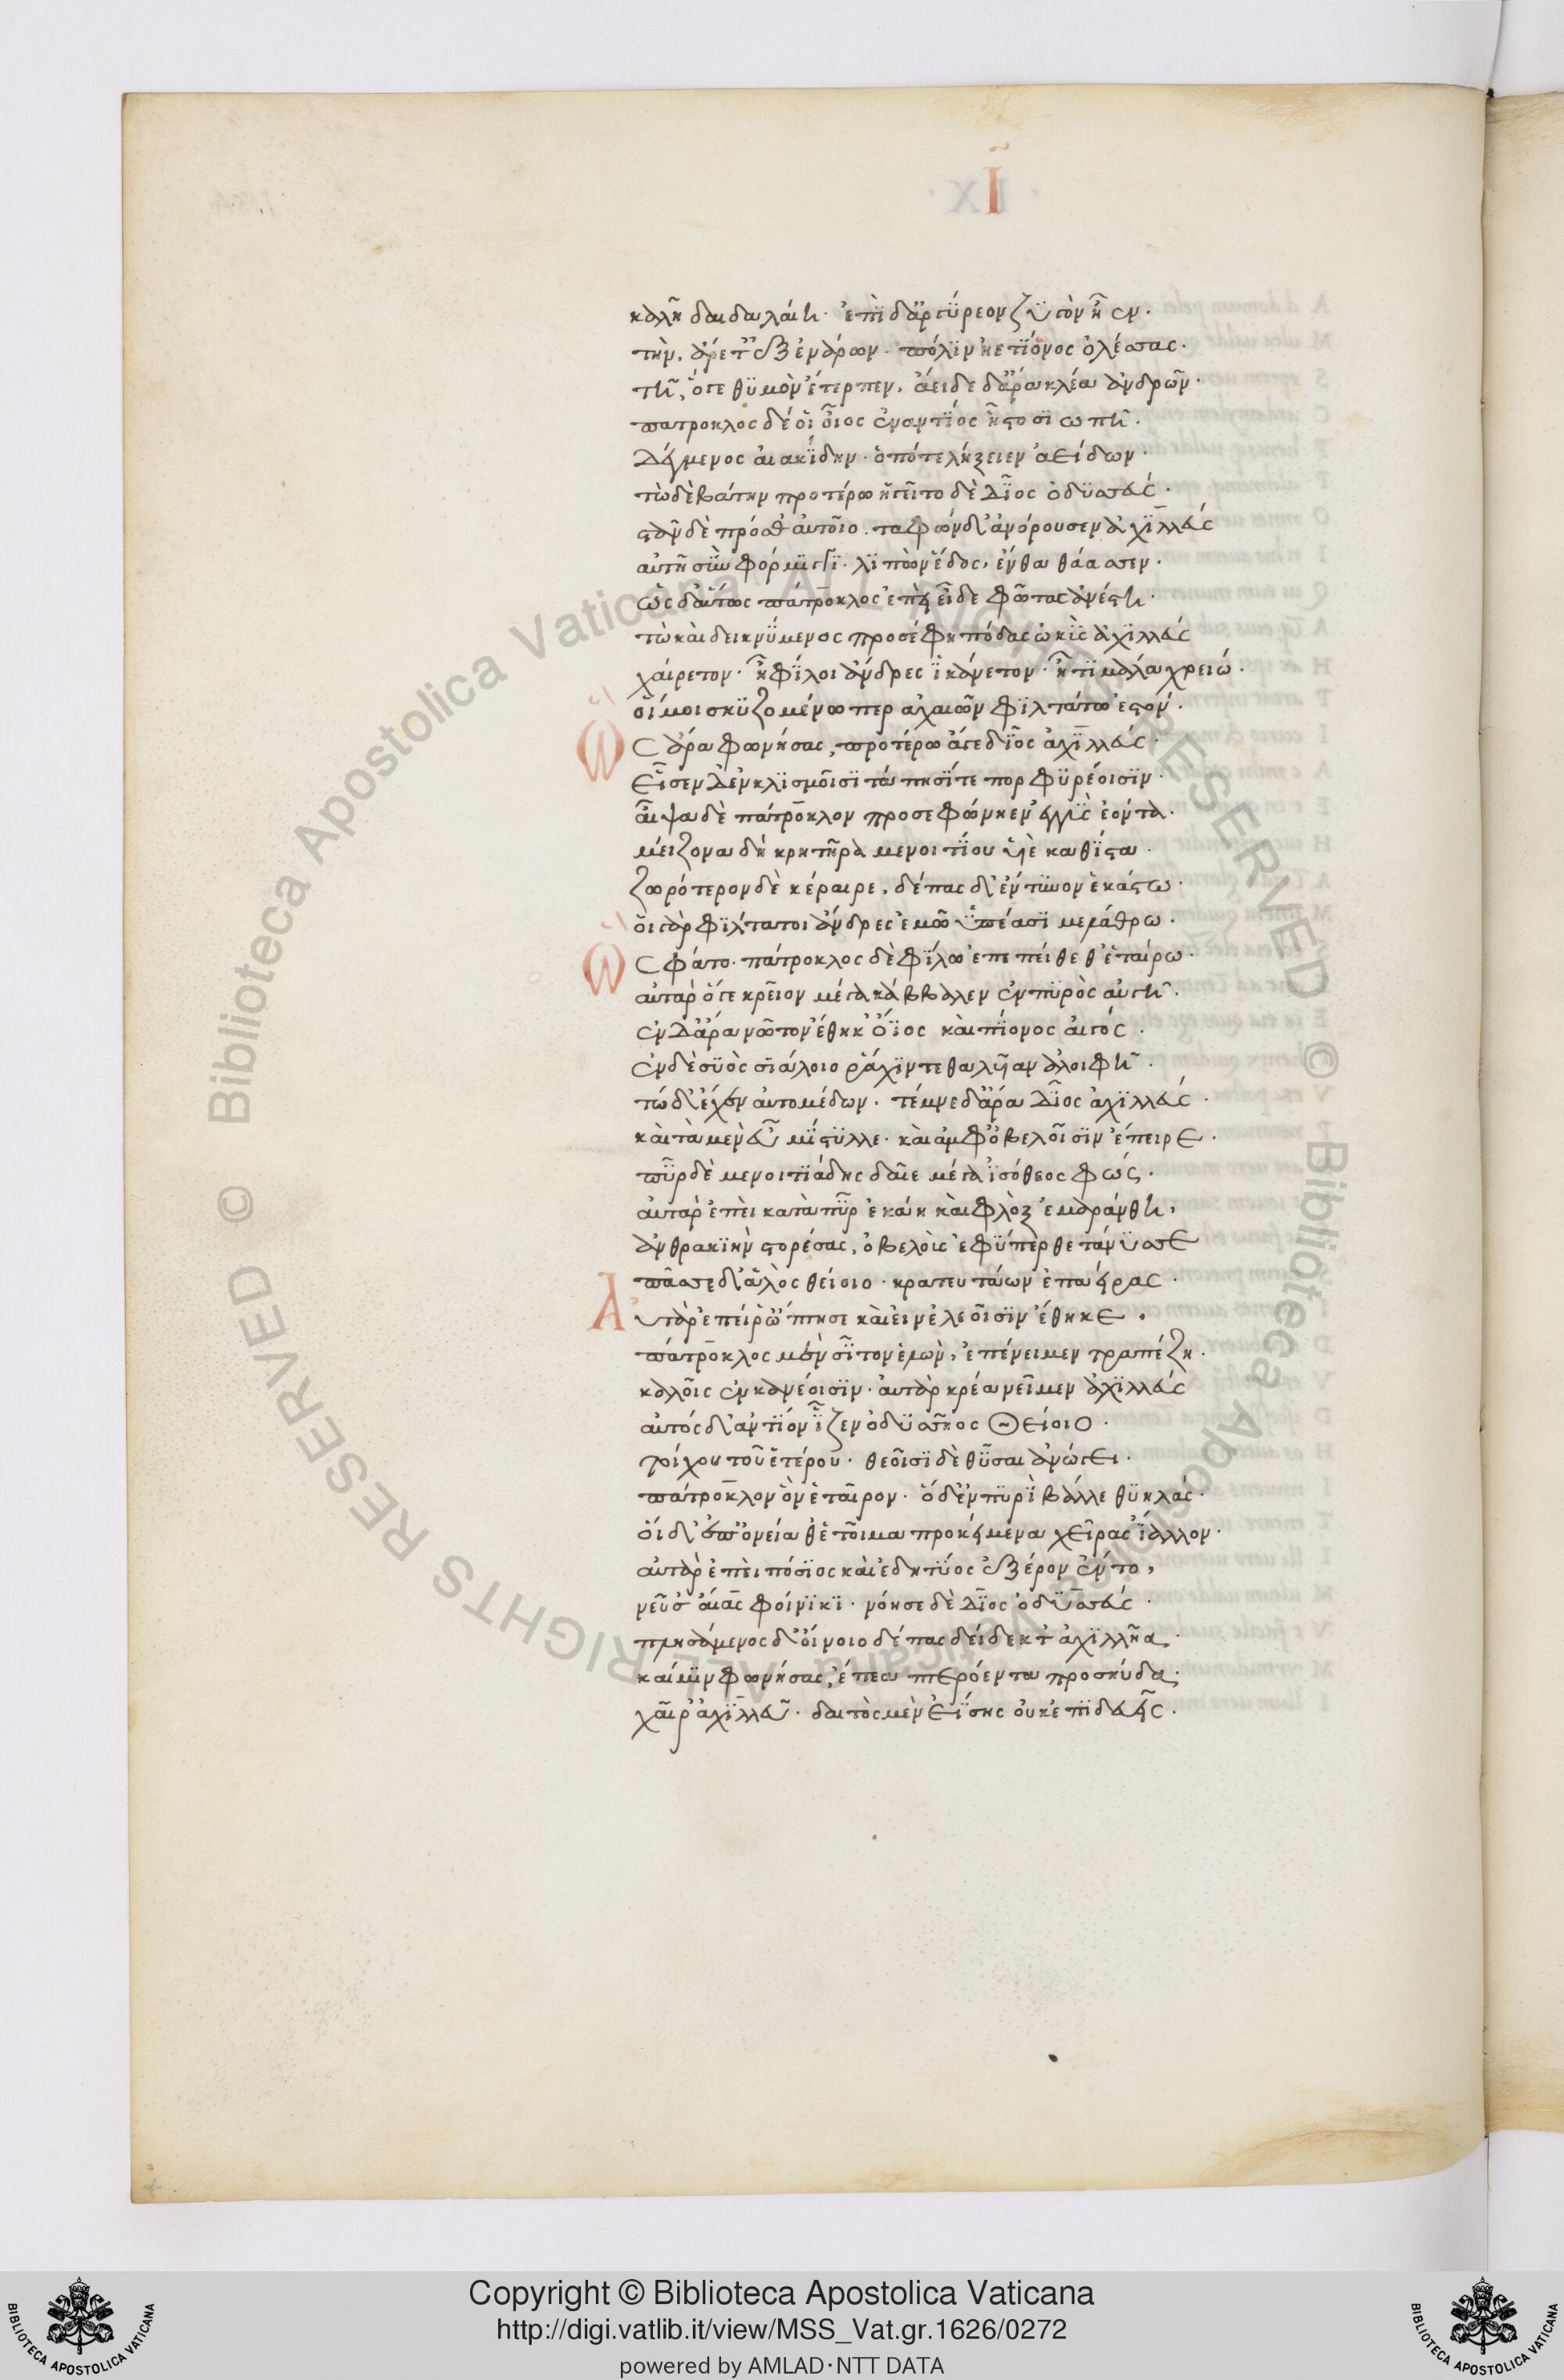 Ι
καλῆ δαιδαλέη· ἐπὶ δ' ἀργύρεον ζυγὸν ἦεν·
τὴν, ἄρετ' ἐξ ἐνάρων. πόλιν ἠετίωνος ὀλέσσας·
τῆ, ὅγε θυμὸν ἔτερπεν, ἄειδε δ' ἄρα κλέα ἀνδρῶν·
πατροκλος δέ οἱ οἶος ἐναντίος ἧστο σιωπῆ·
Δέγμενος αἰακίδην· ὁπότε λήξειεν ἀείδων·
τὼ δὲ βάτην προτέρω ἡγεῖτο δὲ Δῖος ὀδυσσεύς·
στὰν δὲ πρόσθ' αὐτοῖο. ταφὼν δ' ἀνόρουσεν ἀχιλλεύς
αὐτῆ σὺν φόρμιγγι· λιπὼν ἕδος, ἔνθα θάασσεν·
ὣς δ' αὔτως πάτροκλος ἐπεὶ εἶδε φῶτας ἀνέστη·
τὼ καὶ δεικνύμενος προσέφη πόδας ὠκὺς ἀχιλλεύς
χαίρετον· ἦ φίλοι ἄνδρες ἱκάνετον· ἦ τι μάλα χρειώ·
οἵ μοι σκυζομένω περ ἀχαιῶν φίλτατοι ἐστόν·
Ὣς ἄρα φωνήσας, προτέρω ἄγε δῖος ἀχιλλεύς·
Εἷσεν Δ' ἐν κλισμοῖσι τάπησί τε πορφυρέοισιν·
αἶψα δὲ πάτροκλον προσεφώνεεν ἐγγὺς ἐόντα·
μείζονα δὴ κρητῆρα μενοιτίου υἱὲ καθίστα·
ζωρότερον δὲ κέραιρε, δέπας δ' ἔντυνον ἑκάστω·
οἱ γὰρ φίλτατοι ἄνδρες ἐμῶ ὑπέασι μελάθρω·
Ὣς φάτο· πάτροκλος δὲ φίλω ἐπεπείθεθ' ἑταίρω·
αὐτὰρ ὅγε κρεῖον μέγα κάββαλεν ἐν πυρὸς αὐγῆ·
ἐν Δ' ἄρα νῶτον ἔθηκ' ὄϊος καὶ πίονος αἰγός·
ἐν δὲ συὸς σιάλοιο ῥάχιν τεθαλυῖαν ἀλοιφῆ·
τῶ δ' ἔχεν αὐτομέδων· τέμνε δ' ἄρα Δῖος ἀχιλλεύς·
καὶ τὰ μὲν εὖ μίστυλλε· καὶ ἀμφ' ὀβελοῖσιν ἔπειρε·
πῦρ δὲ μενοιτιάδης δαῖε μέγα ἰσόθεος φώς·
αὐτὰρ ἐπεὶ κατὰ πῦρ ἐκάη καὶ φλὸξ ἐμαράνθη,
ἀνθρακιὴν στορέσας, ὀβελοὺς ἐφύπερθε τάνυσσε
πᾶσσε δ' ἁλὸς θείοιο· κρατευτάων ἐπαείρας·
Αὐτὰρ ἐπεί ῥ' ὤπτησε καὶ εἰν ἐλεοῖσιν ἔθηκε·
πάτροκλος μὲν σῖτον ἑλὼν, ἐπένειμεν τραπέζη·
καλοῖς ἐν κανέοισιν· αὐτὰρ κρέα νεῖμεν ἀχιλλεύς
αὐτὸς δ' ἀντίον ἷζεν ὀδυσσῆος Θείοιο·
τοίχου τοῦ ἑτέρου· θεοῖσι δὲ θῦσαι ἀνώγει·
πάτροκλον ὃν ἑταῖρον· ὁ δ' ἐν πυρὶ βάλλε θυηλάς·
οἱ δ' ἐπ' ὀνείαθ' ἑτοῖμα προκείμενα χεῖρας ἴαλλον·
αὐτὰρ ἐπεὶ πόσιος καὶ ἐδητύος ἐξ ἔρον ἕντο,
νεῦσ' αἴας φοίνικι· νόησε δὲ Δῖος ὀδυσσεύς·
πλησάμενος δ' οἴνοιο δέπας δείδεκτ' ἀχιλλῆα·
καί μιν φωνήσας, ἔπεα πτερόεντα προσηύδα·
χαῖρ' ἀχιλλεῦ· δαιτὸς μὲν ἐΐσης οὐκ ἐπιδευεῖς·
Biblioteca Apostolica Vaticana ALL RIGHTS RESERVED ©
Biblioteca Apostolica Vaticana ALL RIGHTS RESERVED ©
BIBLIOTECA APOSTOLICA VATICANA
Copyright © Biblioteca Apostolica Vaticana
http://digi.vatlib.it/view/MSS_Vat.gr.1626/0272
powered by AMLAD·NTT DATA
BIBLIOTECA APOSTOLICA VATICANA